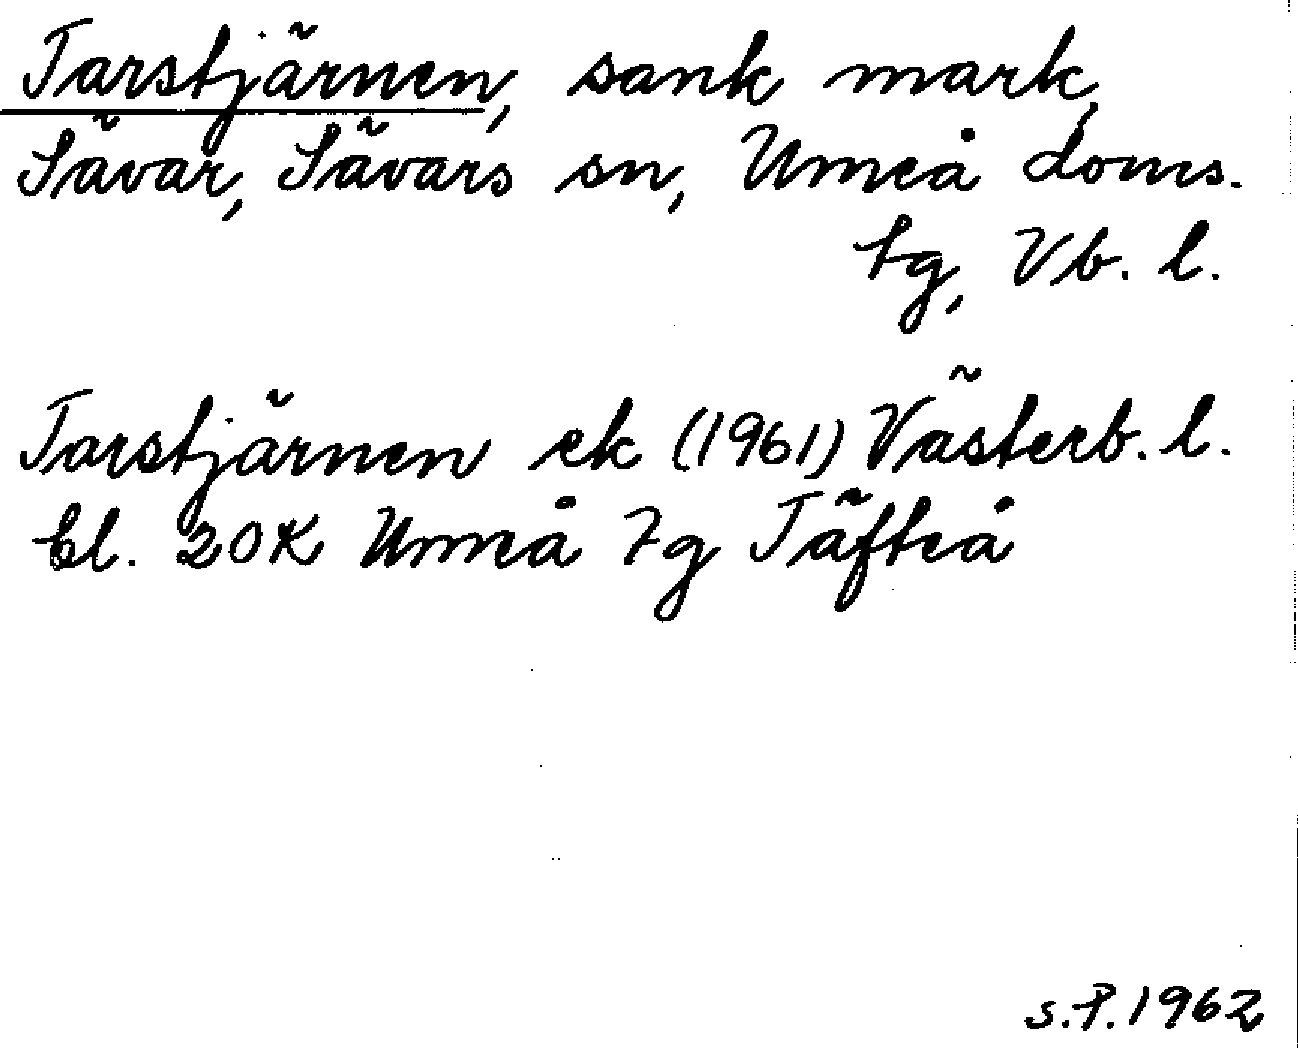 Tarstjärnen, sank mark,
Sävar, Sävars sn, Umeå doms.
tg, Vb. l.
Tarstjärnen ek (1961) Västerb. l.
bl. 20K Umeå 7g Täfteå
S.P. 1962